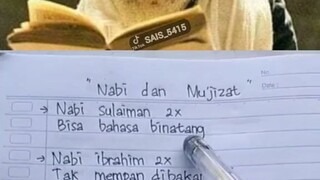 SAIS_5415
"Nabi dan Mu'jizat"
No:
Date:
→ Nabi Sulaiman 2x
Bisa bahasa binatang
→ Nabi ibrahim 2x
Tak mempan dibakar